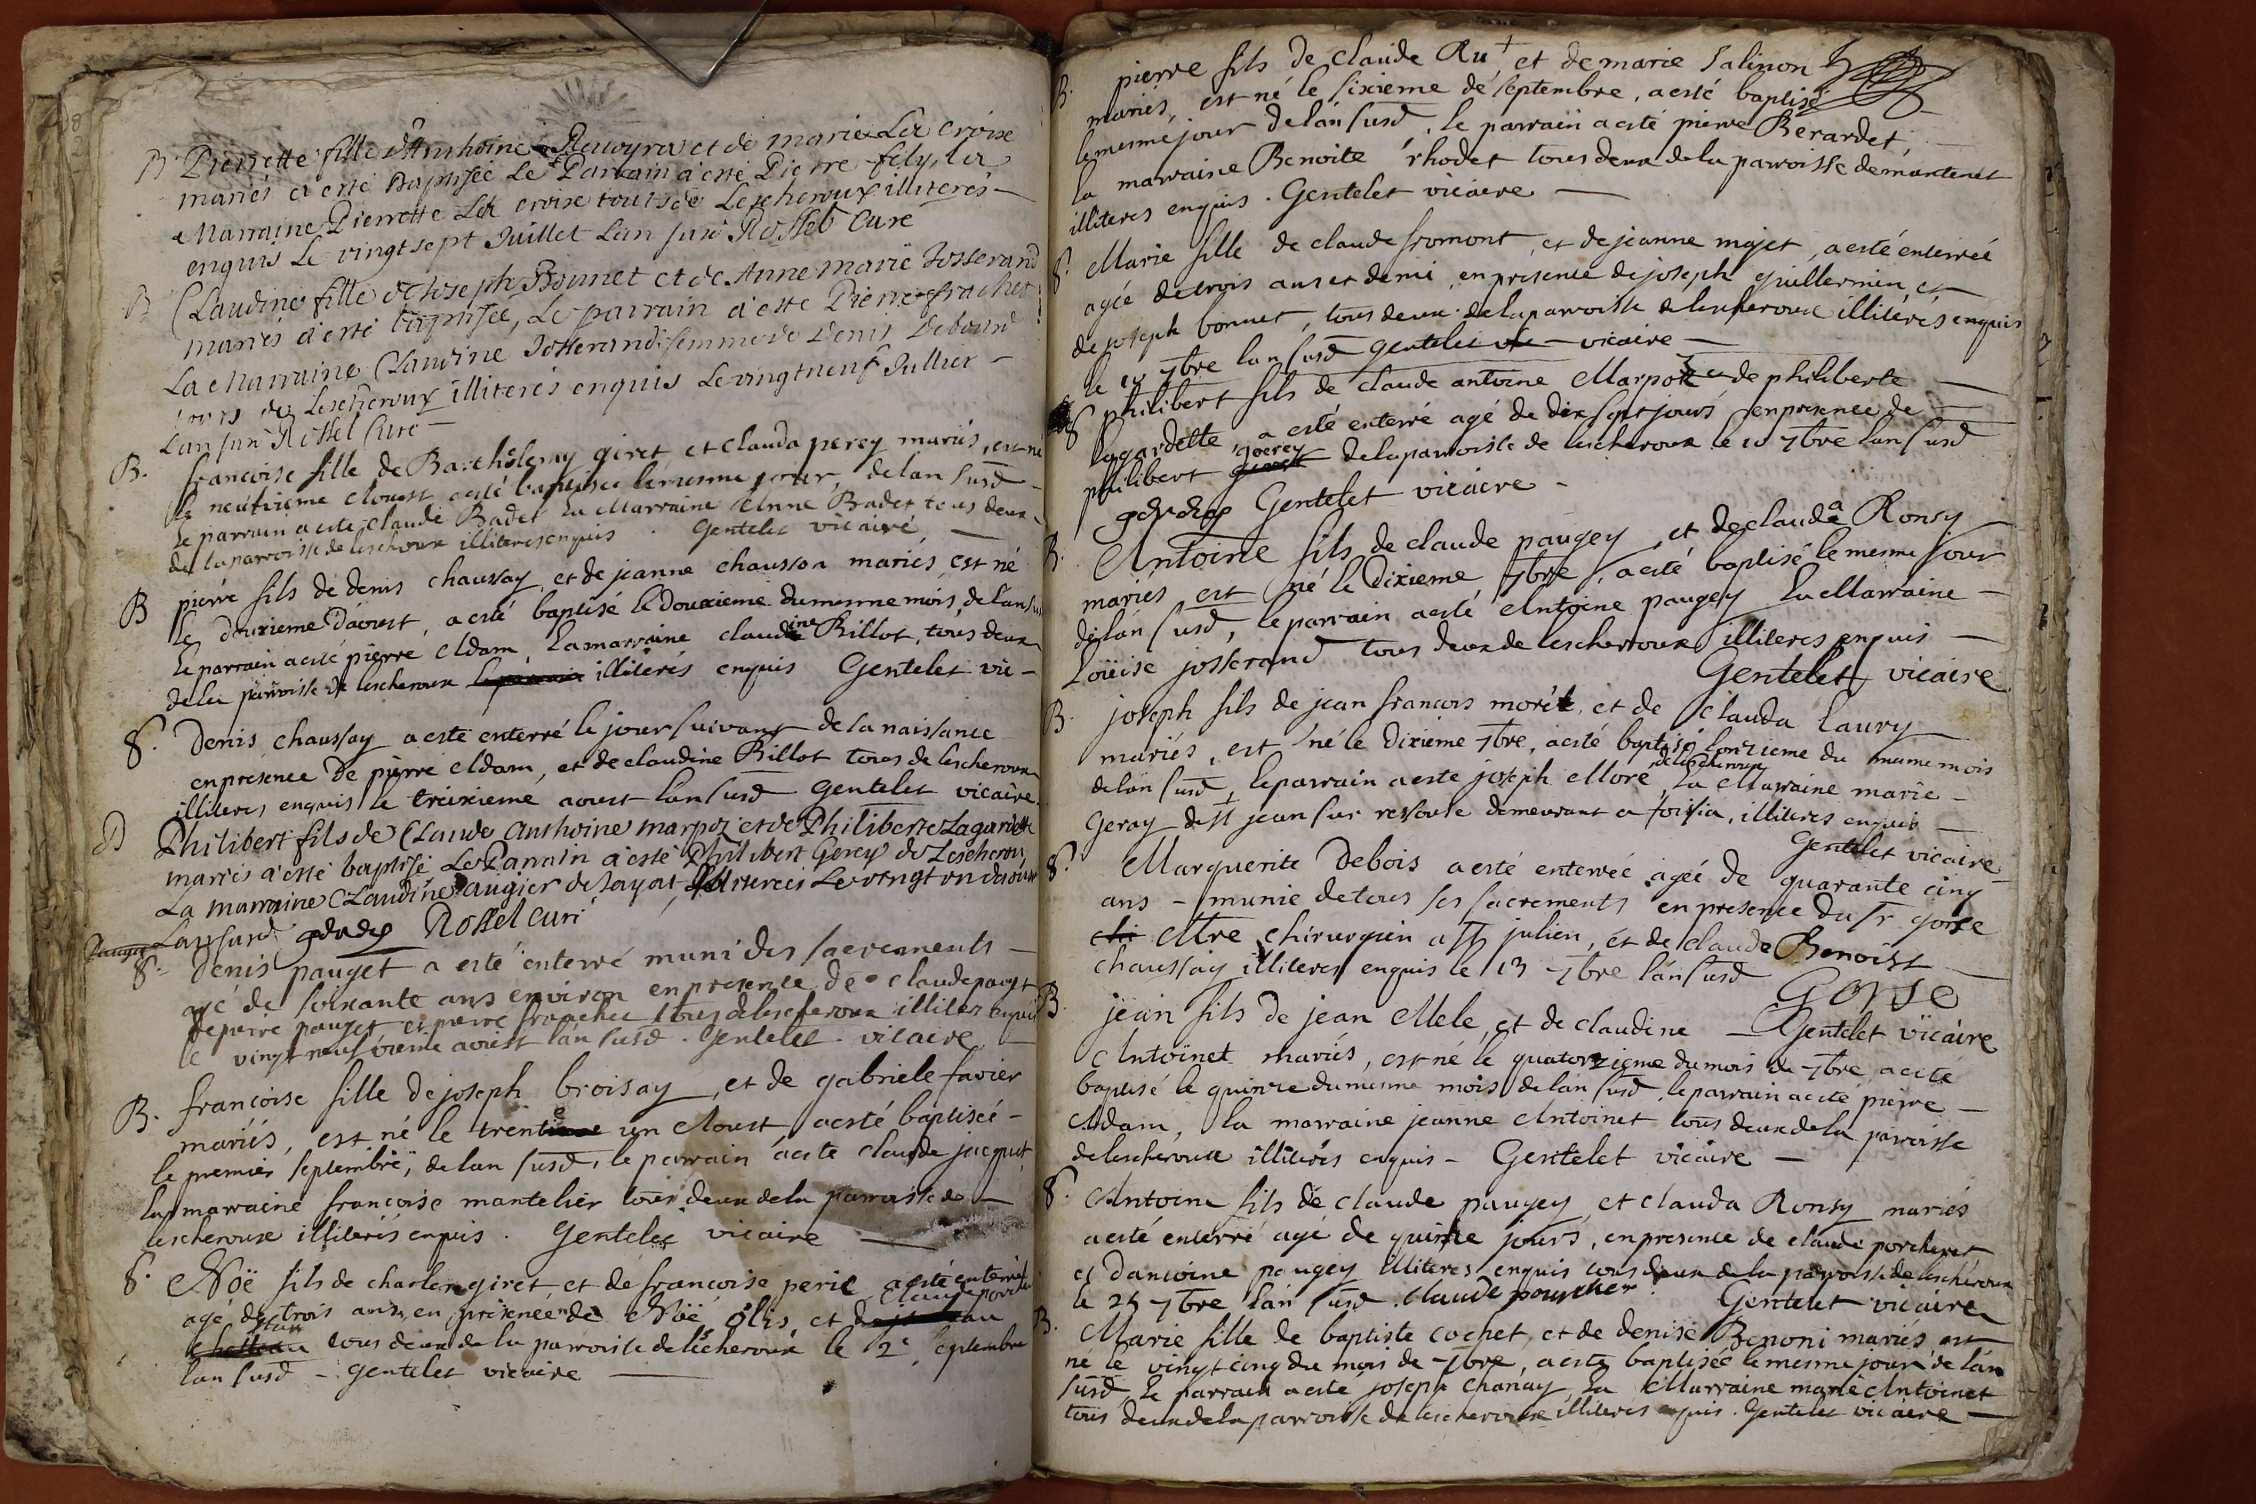 B. Pierrette fille d'Anthoine Reuoyra et de marie La croix
mariés a esté Baptisée Le Parrain a esté Pierre fely, la
Marraine Pierrette La croix touts de Lescheroux illiterés
enquis Le vingt sept Juillet Lan susd Rossel Curé
B Claudine fille de Joseph Bonnet et de Anne marie Josserand
mariés a esté baptisée, Le parrain a esté Pierre frachet
La Marraine Claudine Josserand femme de Denis Debourd
touts de Lescheroux illiterés enquis Le vingt neuf Juillet
Lan susd Rossel Curé
B. francoise fille de Barthelemy giret, et clauda perey mariés, est né
le neufvieme Aoust a esté baptisée le mesme jour, de lan susd
le parrain a esté claude Badet La Marraine Anne Badet tous deux
de la parroisse de leschroux illiteres enquis . Gentelet vicaire
B pierre fils de denis chaussay, et de jeanne chausson mariés, est né
le douxieme Daoust, a esté baptisé le Douxieme du mesme mois, de lan susd
le parrain a esté pierre Adam, La marraine claudine Billot, tous deux
de la parroisse de lescheroux illiterés enquis Gentelet vic
S. Denis chaussay a esté enterré le jour suivant de sa naissance
en présence De pierre Adam, et de claudine Billot tous de lescheroux
illiteres enquis le treixieme aoust lan susd Gentelet vicaire
B Philibert fils de Claude Anthoine marpoz et de Philiberte Lagardette
mariés a esté baptisé Le Parrain a esté Philibert Gorey de Lescheroux
La marraine Claudine augier de Jayat, illiterés Le vingt un daoust
Lan susd Rossel curé
S. Denis pauget a esté enterré muni des sacrements
agé de soixante ans environ en presence de claude pauget
de pierre pauget et pierre frachet tous de lescheroux illiter enquis
le vingt neufvieme aoust lán susd . Gentelet . vicaire
B. francoise fille de joseph broisay, et de gabriele favier
mariés, est né le trente un Aoust a esté baptiseé
le premier septembre, de lan susd, le parrain a esté claude jacquet
la marraine francoise mantelier tous deux de la parroisse de
lescheroux illiterés enquis . Gentelet vicaire
S. Noë fils de charle giret, et de francoise peric a esté enterré
agé de trois ans, en présence de Noë olis, et claude
tous deux de la parroisse de lécheroux le 2e septembre
lan susd - Gentelet vicaire
B. pierre fils de claude Ru et de marie Salinon
mariés, est né le sixieme de septembre, a esté baptisé
le mesme jour de lán susd, le parrain a esté pierre Berardet,
la marraine Benoite rhodet tous deux de la parroisse de mantenet
illiteres enquis . Gentelet vicaire
S. Marie fille de claude fromont, et de jeanne majet, a esté enterreé
agée de trois ans et demi, en présence de joseph guillermin, et
de joseph bonnet, tous deux de la parroisse de lescheroux illitérés enquis
le 10 7bre lan susd gentelet vicaire
S philibert fils de claude antoine Marpot et de philiberte
lagardette a esté enterré agé de dix sept jours en presence de
philibert goerey de la parroisse de lescheroux le 10 7bre lan susd
Gentelet vicaire
B. Antoine fils de claude paugey, et de clauda Ronsy
mariés est né le Dixieme 7bre, a esté baptisé le mesme jour
de lán susd, le parrain a esté Antoine paugey La Marraine
Loüise josserand tous deux de lescherroux illiteres enquis
Gentelet vicaire
B. joseph fils de jean francois morét, et de clauda Laury
mariés, est né le Dixieme 7bre, a esté baptisé lonzieme du mume mois
de lán susd, le parrain a esté joseph Moré de lescheroux, La Marraine marie
Geray de st jean sur ressouse demeurant a foissia, illiteres enquis
Gentelet vicaire
S. Marguerite Debois a esté enterreé ageé de quarante cinq
ans - munie de tous ses sacrements en presence du sr gorse
Mre chirurgien a st julien, et de claude Benoist
chaussay illiteres enquis le 13 7bre lán susd
Gorse
B. jëan fils de jean Mele, et de claudine - Gentelet vicaire
Antoïnet mariés, est né le quatorzieme du mois de 7bre a esté
baptisé le quinze du mesme mois de lán susd, le parrain a esté pierre
Adam, la marraine jeanne Antoinet tous deux de la parroisse
de lescheroux illitérés enquis - Gentelet vicaire
S. Antoine fils de claude paugey, et clauda Ronsy mariés
a esté enterré agé de quinze jours, en presence de claude porcheret
et Dantoine paugey illiteres enquis tous deux de la parroisse de leschéroux
le 25 7bre lán susd . Claude pourcher Gentelet vicaire
B. Marie fille de baptiste cochet, et de denise Benoni mariés, est
né le vingt cinq du mois de 7bre, a esté baptisée le mesme jour de lán
susd, le parrain a esté joseph chanay, La Marraine marie Antoinet
tous deux de la parroisse de lescheroux illiteres enquis . Gentelet vicaire